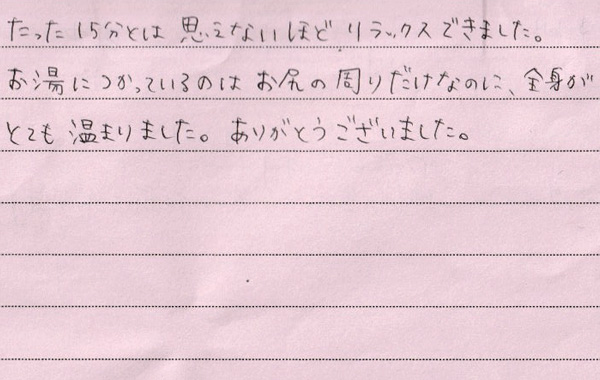 たった15分とは思えないほどリラックスできました。
お湯につかっているのはお尻の周りだけなのに、全身が
とても温まりました。ありがとうございました。